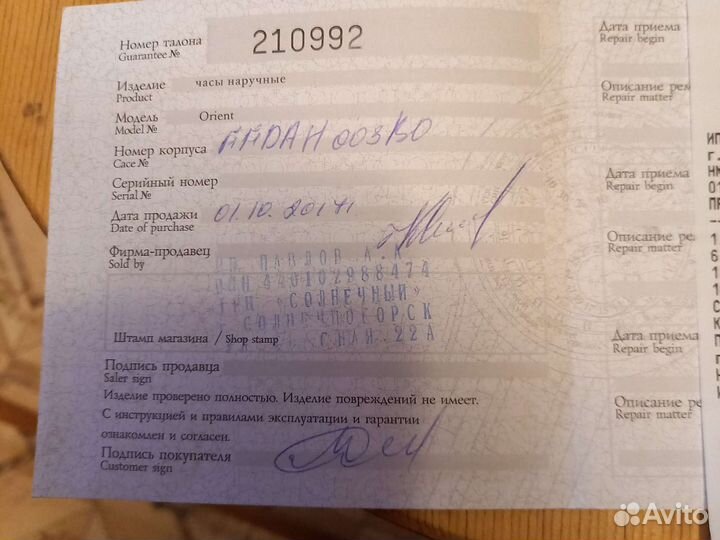 Номер талона
Guarantee №
210992
Изделие
Product
часы наручные
Модель
Model №
Orient
Номер корпуса
Cace №
Серийный номер
Serial №
Дата продажи
Date of purchase
01.10.2017г
Фирма-продавец
Sold by
ИП ПАВЛОВ А.К
440102988474
«СОЛНЕЧНЫЙ»
СОЛНЕЧНОГОРСК
22А
Штамп магазина / Shop stamp
Подпись продавца
Saler sign
Изделие проверено полностью. Изделие повреждений не имеет.
С инструкцией и правилами эксплуатации и гарантии
ознакомлен и согласен.
Подпись покупателя
Customer sign
Дата приема
Repair begin
Описание рем
Repair matter
Дата приема
Repair begin
Описание рем
Repair matter
Дата приема
Repair begin
Описание ре
Repair matter
Avito